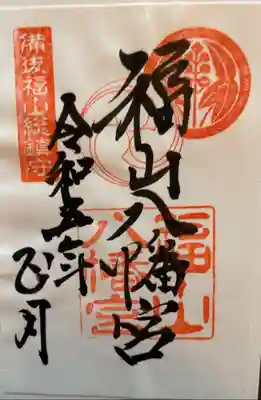 福山八幡宮
令和五年
正月
備後福山總鎮守
福山
八幡宮